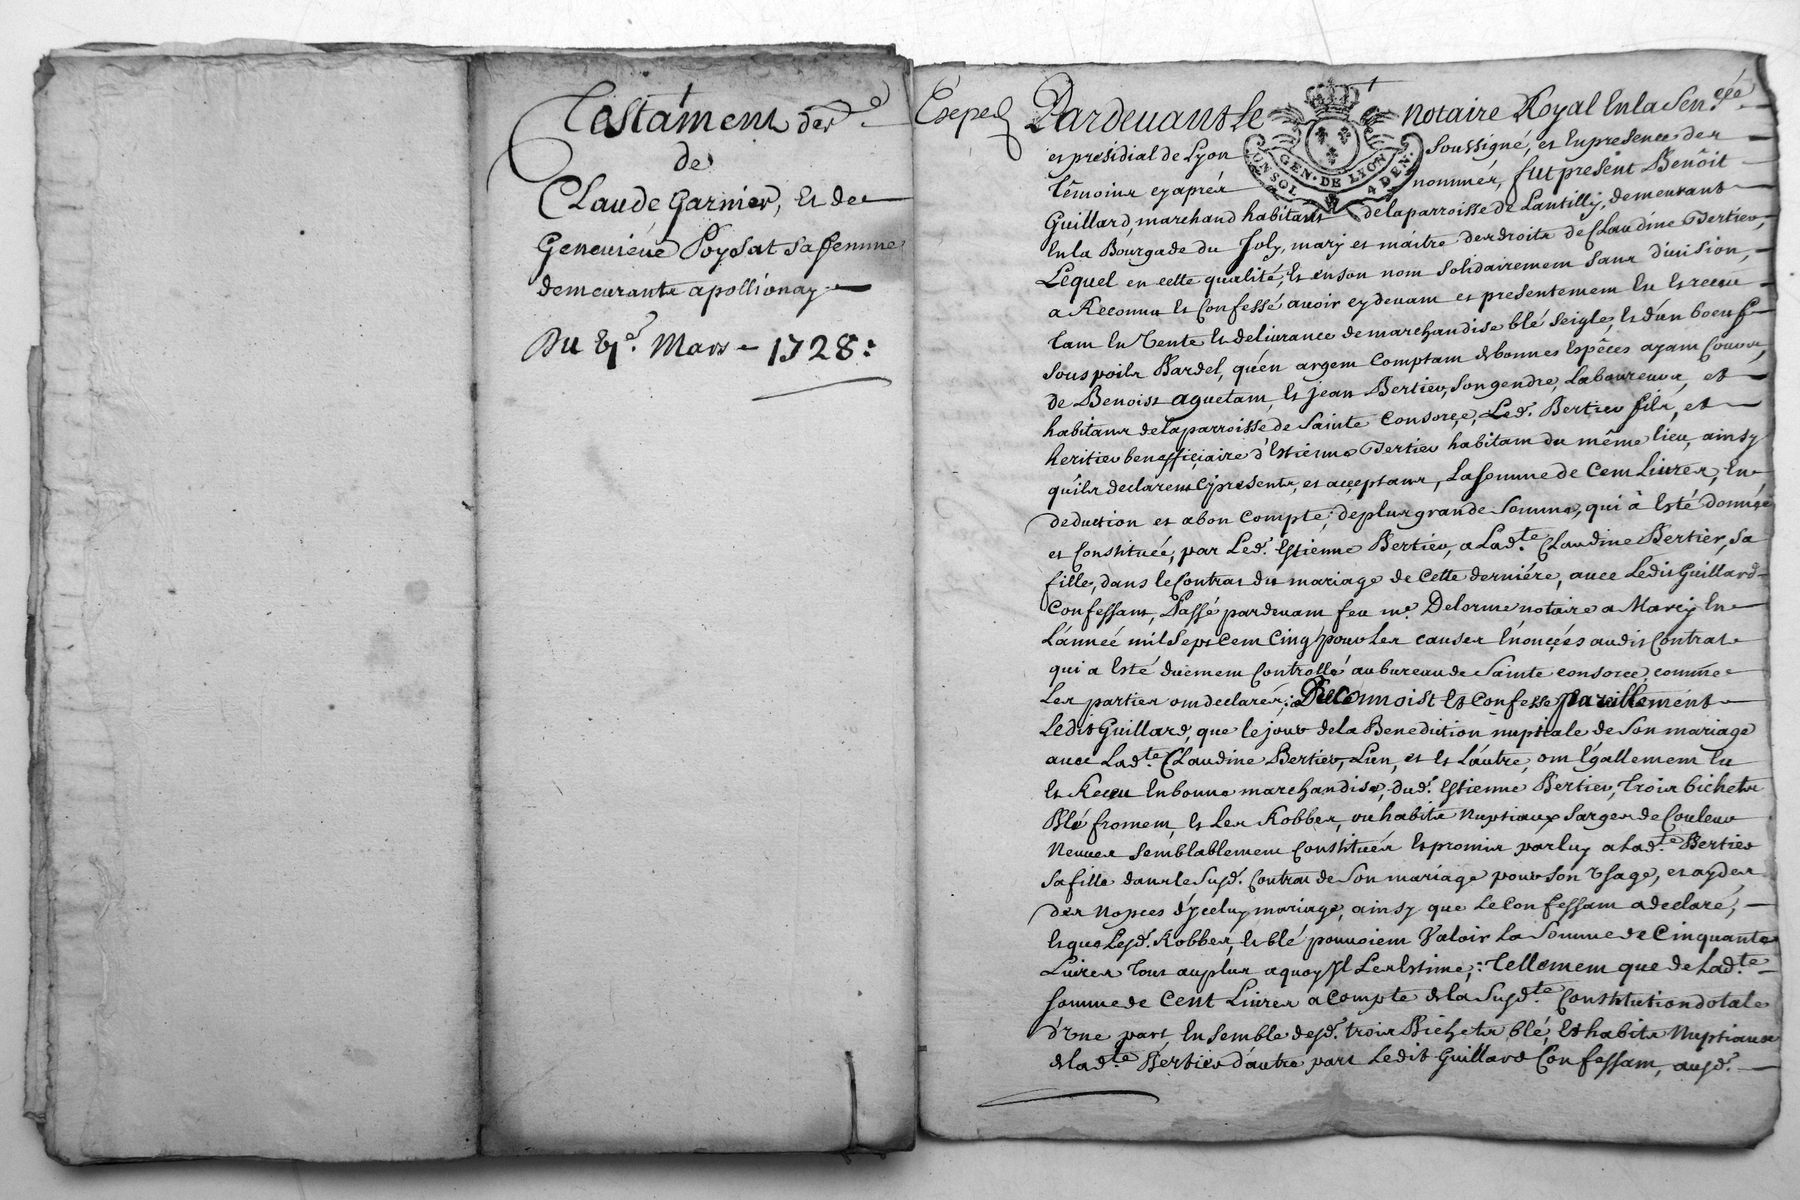 Testament des
de
Claude Garnier, et de
Geneviéve Poysat sa femme
demeurants a pollionay
Du 8e. Mars 1728:
Exped
Pardevant le notaire Royal En la Senée
et présidial de Lyon soussigné, et En presence des
témoins cy aprés nommés, fut présent Benôit
Guillard, marchand habitant de la parroisse de Lantilly, demeurant
En la Bourgade du Joly, mary et maître des droits de Claudine Bertier,
Lequel en cette qualité, Et en son nom solidairement sans division,
a Reconnu Et Confessé avoir cy devant et presentement Eu Et receu
tant En Vente Et delivrance de marchandise blé seigle, Et d'un boeuf
sous poils Bardel, qu'en argent Comptant de bonnes Espêces ayant Cours,
de Benoist aguetant, Et jean Bertier, son gendre, Laboureurs, et
habitans de la parroisse de Sainte Consorce, Led. Bertier fils, et
heritier beneffiçiaire d'Estienne Bertier habitant du même lieu, ainsy
qu'ils declarent Cy presents, et acceptans, La somme de Cent Livres, En
deduction et a bon Compte, de plus grande Somme, qui à Esté donnée
et Constituée, par Led. Estienne Bertier, a Lad.te Claudine Bertier, sa
fille, dans le Contrat du mariage de Cette derniére, avec Ledit Guillard
Confessant, Passé pardevant feu me. Delorme notaire a Marcy En
L'année mil Sept Cent Cinq pour Les causes Enonçées audit Contrat
qui a Esté duëment Controllé au bureau de Sainte Consorce, comme
Les parties ont declarés; Reconnoist Et Confesse pareillement
Ledit Guillard, que le jour de la Benediction nuptiale de Son mariage
avec Lad.te Claudine Bertier, L'un, et Et L'autre, ont Egallement Eu
Et Receu En bonne marchandise, dud. Estienne Bertier, trois bichets
Blé froment, Et Les Robbes, ou habits Nuptiaux sarges de Couleur
Neuves semblablement Constitués Et promis par luy a Lad.te Bertier
sa fille dans le Susd. Contrat de Son mariage pour Son Usage, et aydes
des Nopces d'yceluy mariage, ainsy que Le Confessant a declaré,
Et que Lesd. Robbes, Et blé pouvoient Valoir La Somme de Cinquante
Livres tout au plus a quoy Il Les Estime; tellement que de Lad.te
somme de Cent Livres a Compte de la Susd.te Constitution dotale
d'Une part, En semble desd. trois Bichets blé, Et habits Nuptiaux
de lad.te Bertier d'autre part Ledit Guillard Confessant, ausd.
GEN. DE LYON
4 DEN.